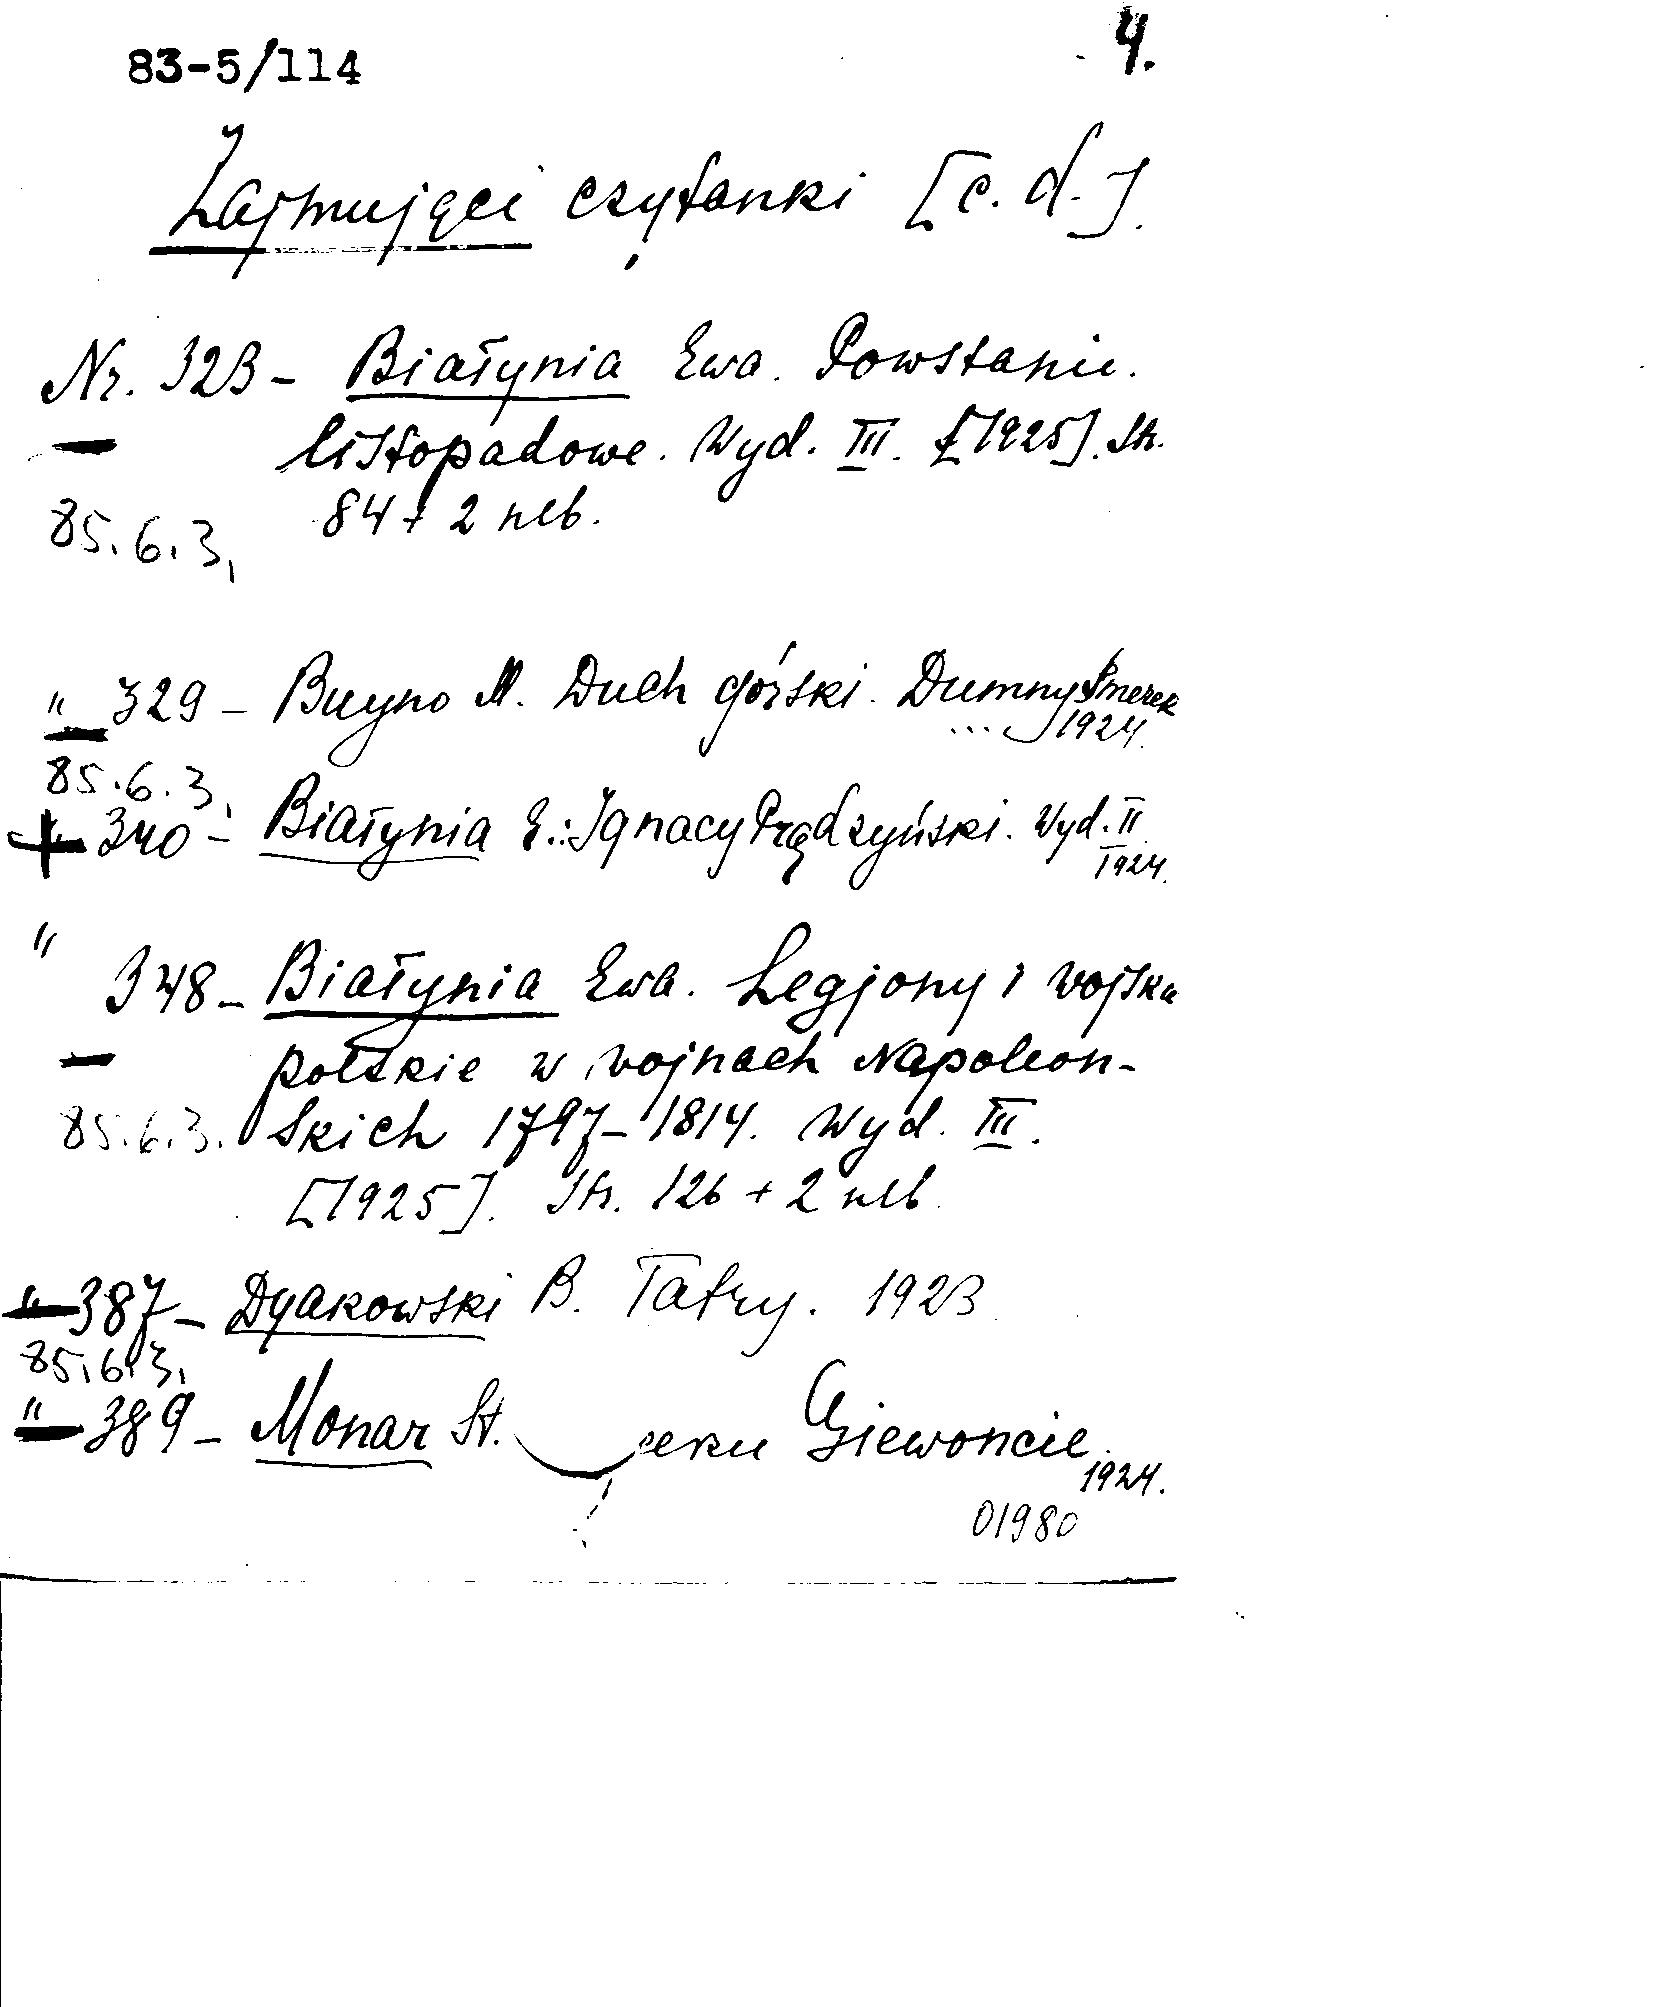 83-5/114
4.
Zajmujące czytanki [c.d.].
Nr. 323 - Białynia Ewa. Powstanie
listopadowe. Wyd. III. [1925]. Str.
84 + 2 nlb.
85.6.3.
" 329 - Buyno M. Duch górski. Dumny Smerek
... 1924.
85.6.3.
" 340 - Białynia E.: Ignacy Prądzyński. Wyd. II
1924.
" 348 - Białynia Ewa. Legjony i wojska
polskie w wojnach Napoleon-
85.6.3. skich 1797-1814. Wyd. III.
[1925]. Str. 126 + 2 nlb.
" 387 - Dyakowski B. Tatry. 1923
85.6.3.
" 389 - Monar St. Giewoncie
1924.
01980